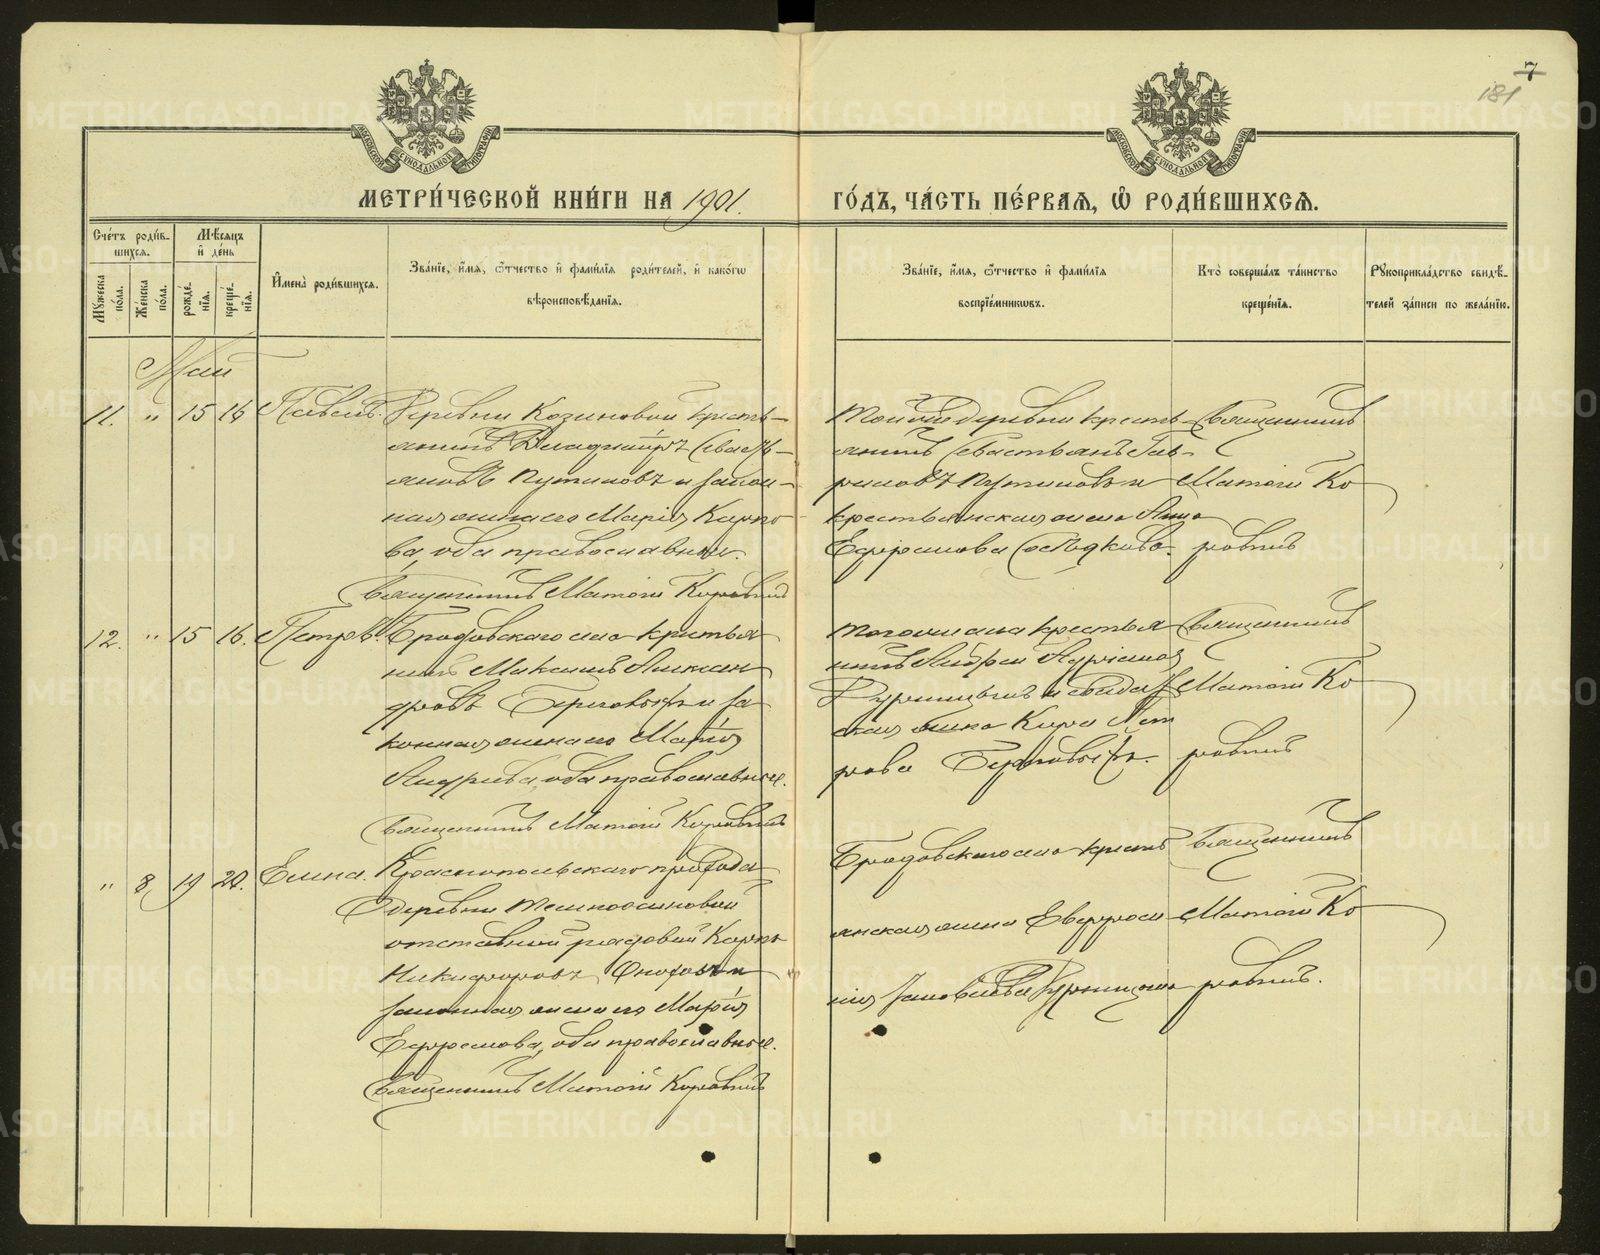 7
181
МОСКОВСКОЙ СѴНОДАЛЬНОЙ ТИПОГРАФІИ
МОСКОВСКОЙ СѴНОДАЛЬНОЙ ТИПОГРАФІИ
МЕТРИ́ЧЕСКОЙ КНИ́ГИ НА 1901.
ГО́ДЪ, ЧА́СТЬ ПЕ́РВАЯ, Ѡ РОДИ́ВШИХСЯ.
Сче́тъ роди́в-
шихся.
Мꙋ́жеска по́ла.
Же́нска по́ла.
Мѣ́сяцъ и де́нь
рожде́нїя.
креще́нїя.
И҆мена̀ роди́вшихся.
Зва́нїе, и҆́мя, ѻ҆́тчество и҆ фами́лїя роди́телей, и҆ како́гѡ
вѣроисповѣ́данїя.
Зва́нїе, и҆́мя, ѻ҆́тчество и҆ фами́лїя
воспрїе́мникѡвъ.
Кто̀ соверша́лъ та́инство
креще́нїя.
Рꙋкоприкла́дство свидѣ́-
телей за́писи по жела́нїю.
Май
11. " 15 16 Павелъ. Деревни Козиновой кресть-
янинъ Владиміръ Севастья-
новъ Путиловъ и закон-
ная жена его Марія Карпо
ва, оба православные.
Священникъ Матѳій Коровинъ
Той же деревни кресть-
янинъ Севастьянъ Гав-
риловъ Путиловъ и
крестьянская жена Анна
Ефремова
Священникъ
Матѳій Ко
ровинъ
12. " 15 16. Петръ. Бродовскаго села крестья
нинъ Максимъ Алексан
дровъ Береговыхъ и за
конная жена его Марія
Андреева, оба православные.
Священникъ Матѳій Коровинъ
того же села крестья
нинъ Андрей
Пет
рова Береговыхъ.
Священникъ
Матѳій Ко
ровинъ
" 8 19 20. Елена. Краснопольскаго прихода
деревни Темноосиновой
отставной рядовой Карпъ
Никифоровъ и
законная жена его Марія
Ефремова, оба православные.
Священникъ Матѳій Коровинъ
Бродовскаго села кресть
янская жена Евфроси
нія
Священникъ
Матѳій Ко
ровинъ.
METRIKI.GASO-URAL.RU